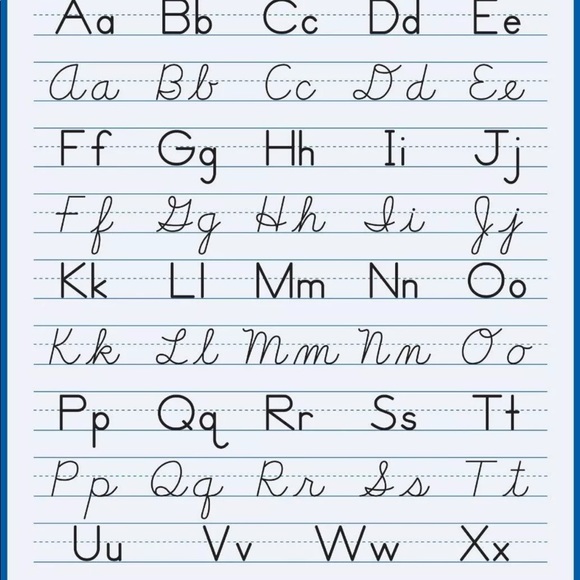 Aa Bb Cc Dd Ee
Aa Bb Cc Dd Ee
Ff Gg Hh Ii Jj
Ff Gg Hh Ii Jj
Kk Ll Mm Nn Oo
Kk Ll Mm Nn Oo
Pp Qq Rr Ss Tt
Pp Qq Rr Ss Tt
Uu Vv Ww Xx